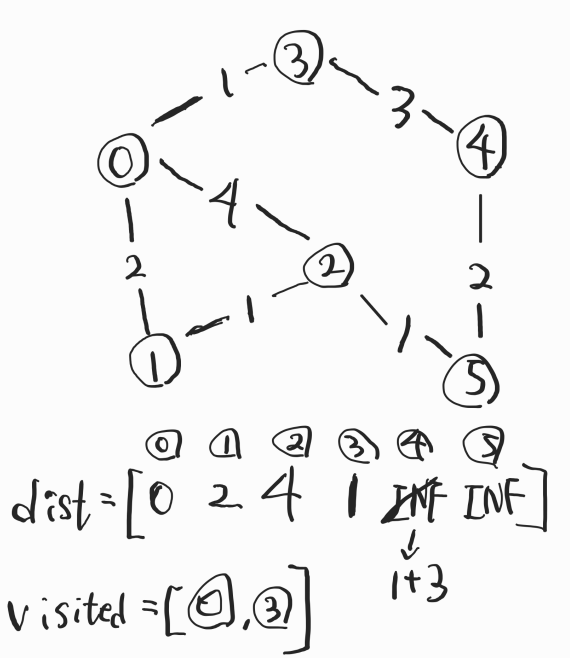 3
1
3
4
0
4
2
2
1
2
1
1
5
0 1 2 3 4 5
dist = [0 2 4 1 INF INF]
1+3
visited = [0, 3]